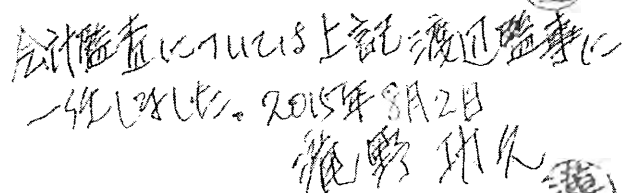 会計監査については上記渡辺監事に
一任しました。2015年8月2日
滝野 功久